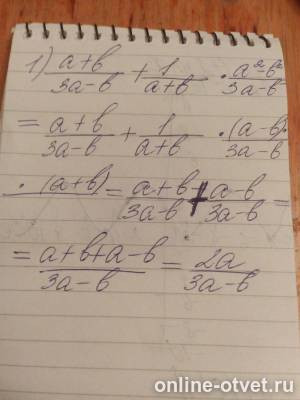 1) (a+b)/(3a-b) + 1/(a+b) · (a²-b²)/(3a-b)
= (a+b)/(3a-b) + 1/(a+b) · (a-b)·/(3a-b)
· (a+b) = (a+b)/(3a-b) + (a-b)/(3a-b) =
= (a+b+a-b)/(3a-b) = 2a/(3a-b)
online-otvet.ru